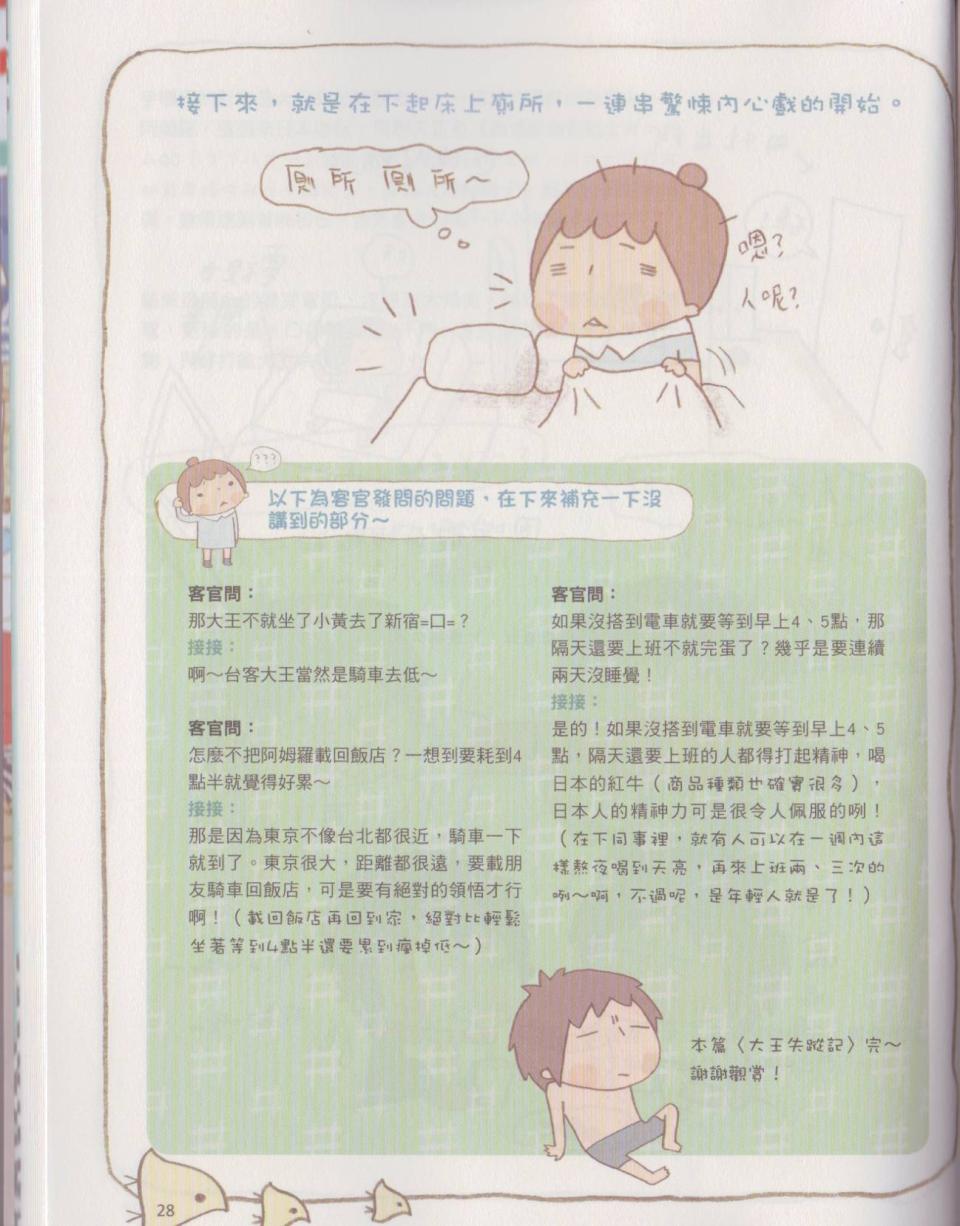 接下來，就是在下起床上廁所，一連串驚悚內心戲的開始。
廁所 廁所～
嗯？
人呢？
???
以下為客官發問的問題，在下來補充一下沒
講到的部分～
客官問：
那大王不就坐了小黃去了新宿=口=？
接接：
啊～台客大王當然是騎車去低～
客官問：
怎麼不把阿姆羅載回飯店？一想到要耗到4
點半就覺得好累～
接接：
那是因為東京不像台北都很近，騎車一下
就到了。東京很大，距離都很遠，要載朋
友騎車回飯店，可是要有絕對的領悟才行
啊！（載回飯店再回到家，絕對比輕鬆
坐著等到4點半還要累到癱掉低～）
客官問：
如果沒搭到電車就要等到早上4、5點，那
隔天還要上班不就完蛋了？幾乎是要連續
兩天沒睡覺！
接接：
是的！如果沒搭到電車就要等到早上4、5
點，隔天還要上班的人都得打起精神，喝
日本的紅牛（商品種類也確實很多），
日本人的精神力可是很令人佩服的咧！
（在下同事裡，就有人可以在一週內這
樣熬夜喝到天亮，再來上班兩、三次的
咧～啊，不過呢，是年輕人就是了！）
本篇〈大王失蹤記〉完～
謝謝觀賞！
28